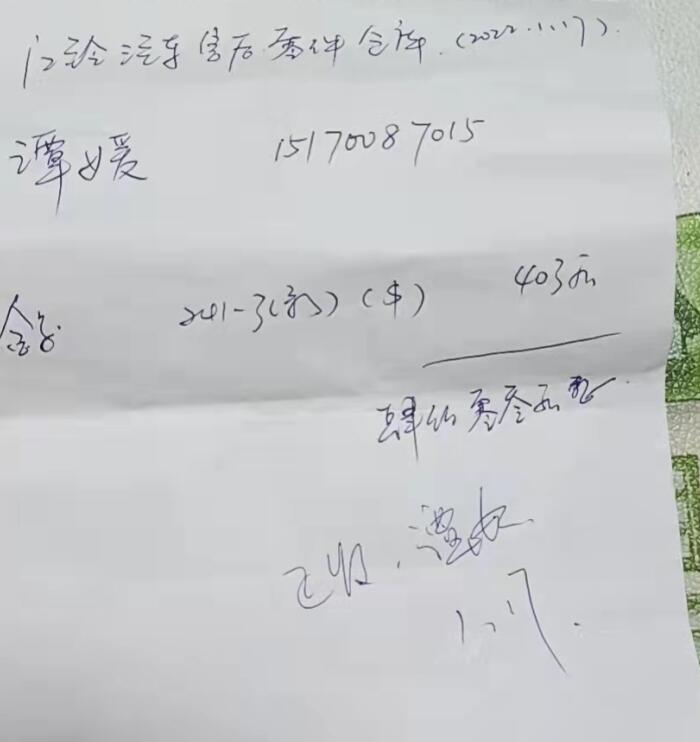 江铃汽车售后零件仓库.(2022.1.17).
谭媛 15170087015
241-3(新)(中) 403元
肆佰零叁元整
已收.谭媛
1.17.